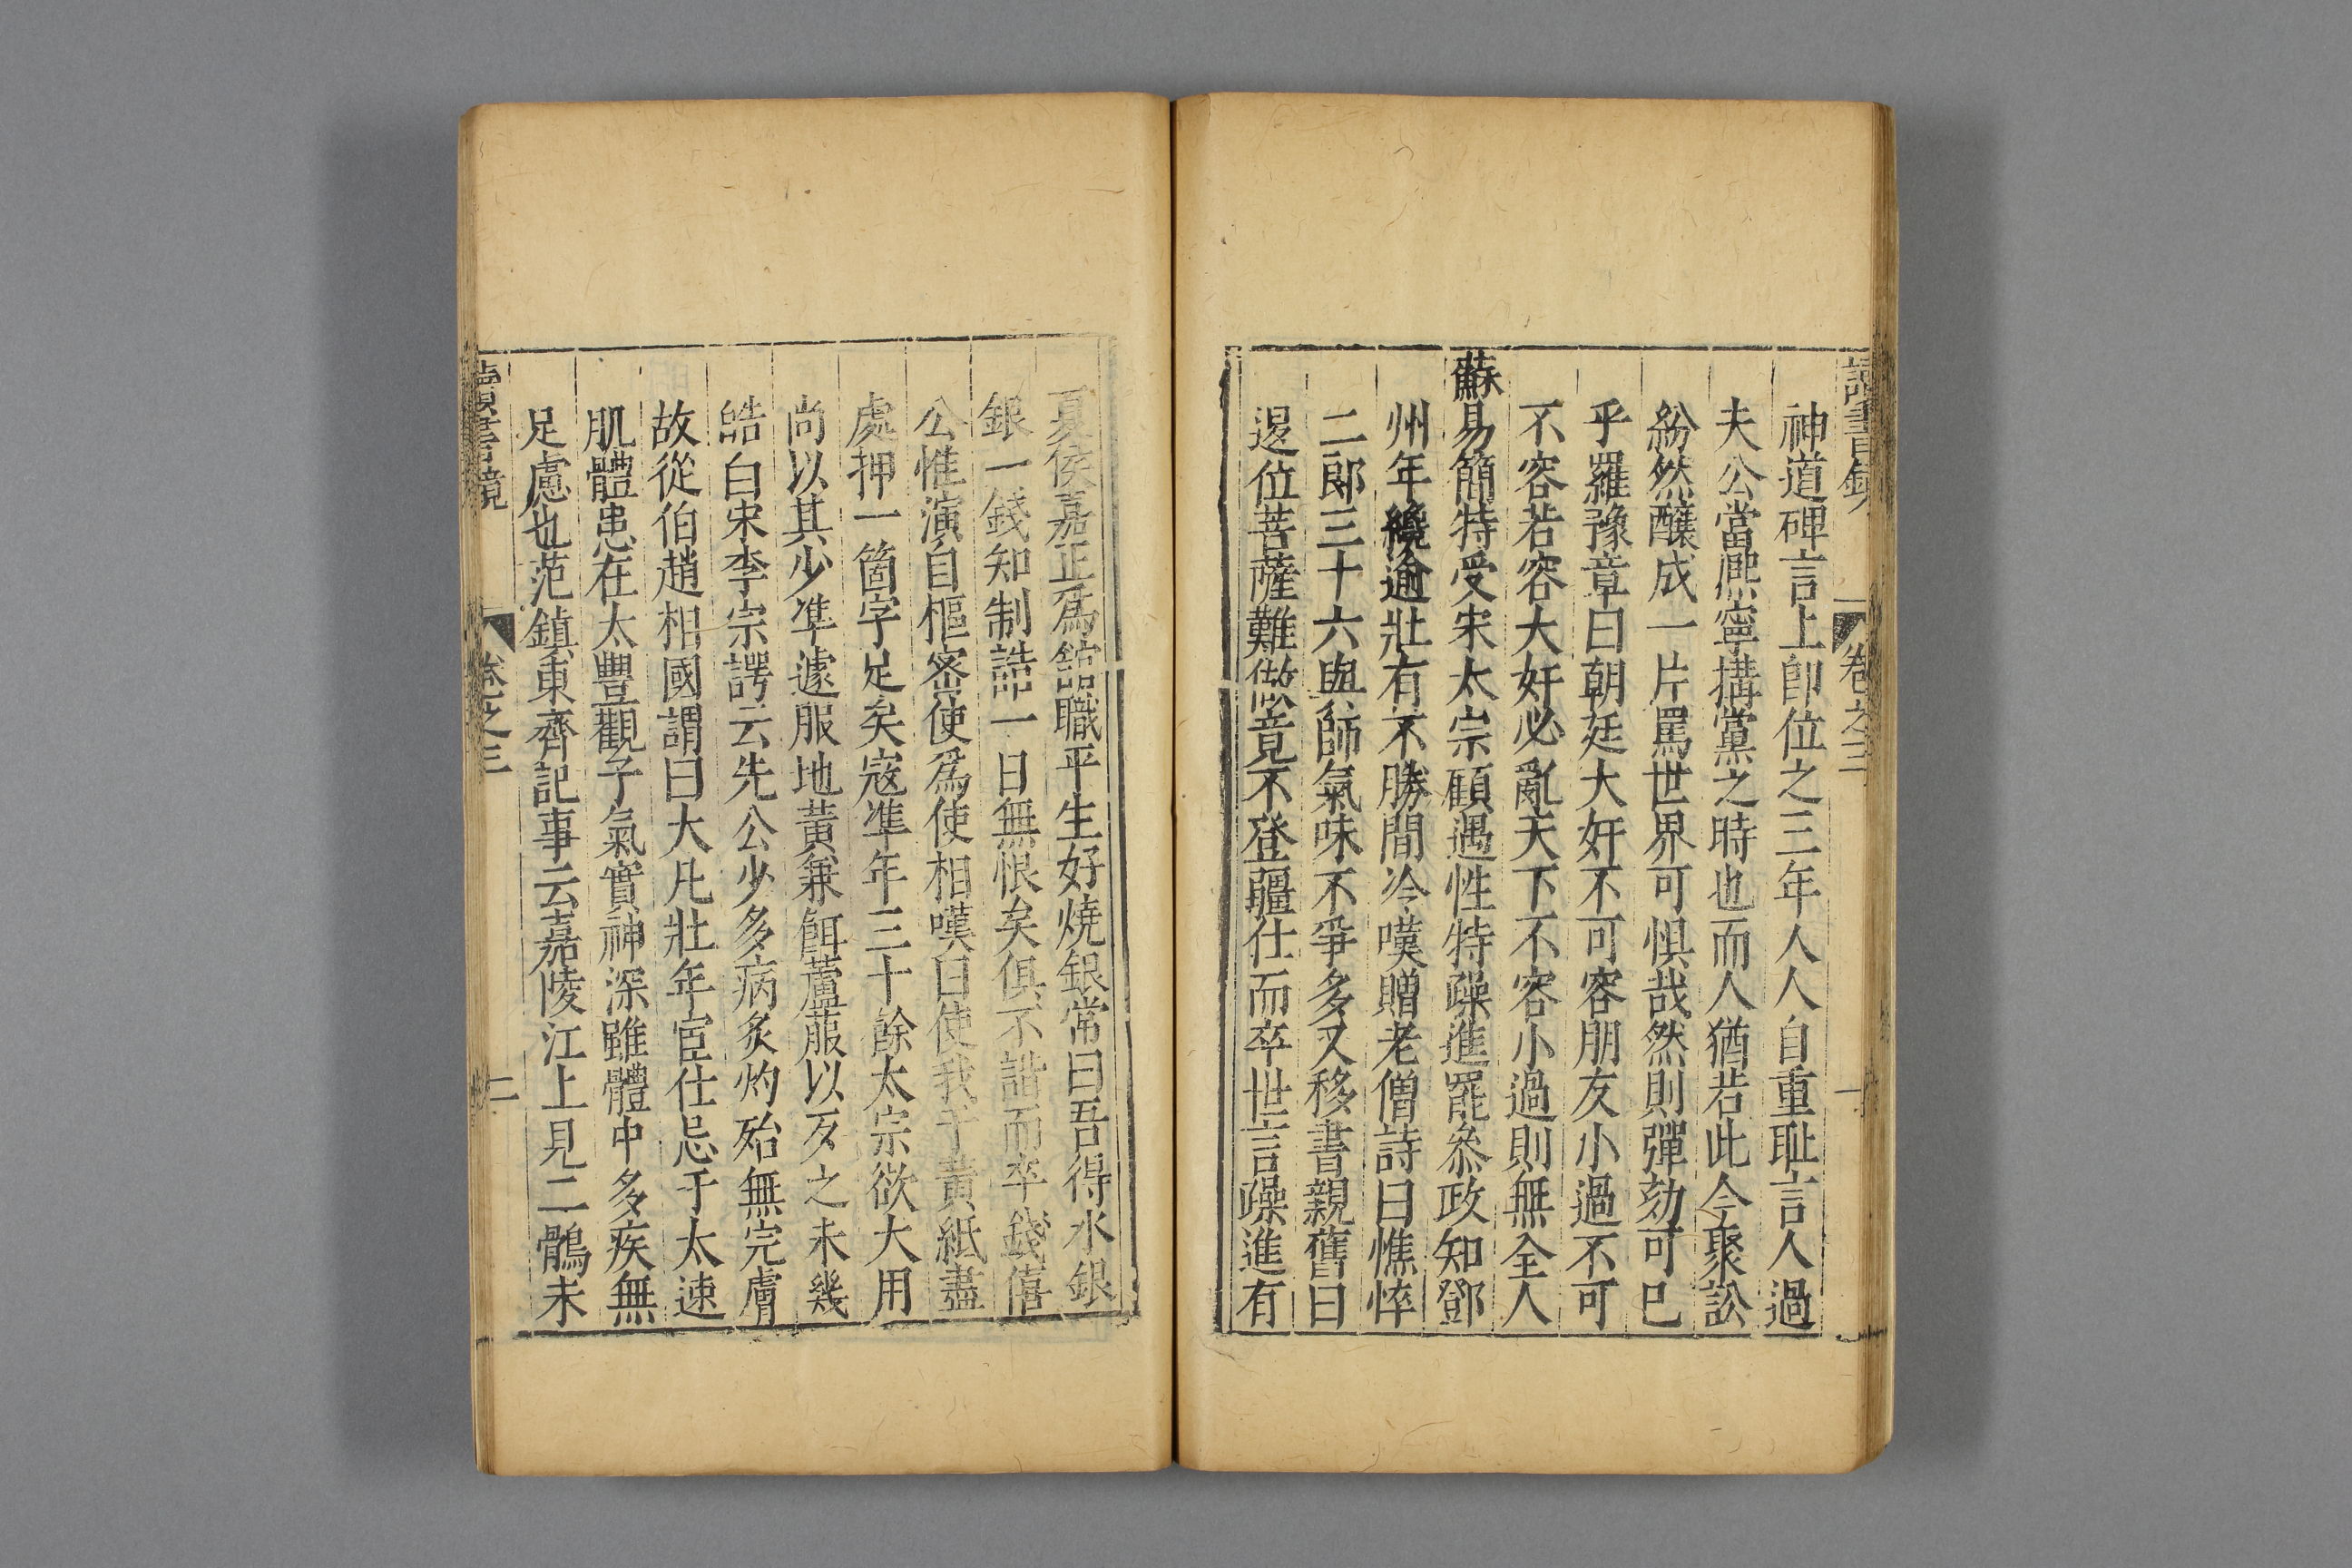 讀書鏡 卷之三 一
神道碑言上卽位之三年人人自重耻言人過
夫公當熈寧搆黨之時也而人猶若此今聚訟
紛然釀成一片罵世界可惧哉然則彈劾可巳
乎羅豫章曰朝廷大奸不可容朋友小過不可
不容若容大奸必亂天下不容小過則無全人
蘇易簡特受宋太宗顧遇性特躁進罷叅政知鄧
州年纔逾壯有不勝間冷嘆贈老僧詩曰憔悴
二郎三十六與師氣味不爭多又移書親舊曰
退位菩薩難做竟不登疆仕而卒世言躁進有
夏侯嘉正爲舘職平生好燒銀常曰吾得水銀
銀一錢知制誥一日無恨矣俱不諧而卒錢僖
公惟演自樞密使爲使相嘆曰使我于黃紙盡
處押一箇字足矣寇準年三十餘太宗欲大用
尚以其少準遽服地黃兼餌蘆菔以反之未幾
皓白宋李宗諤云先公少多病炙灼殆無完膚
故從伯趙相國謂曰大凡壯年宦仕忌于太速
肌體患在太豐觀子氣實神深雖體中多疾無
足慮也范鎮東齊記事云嘉陵江上見二鶻未
讀書鏡 卷之三 二